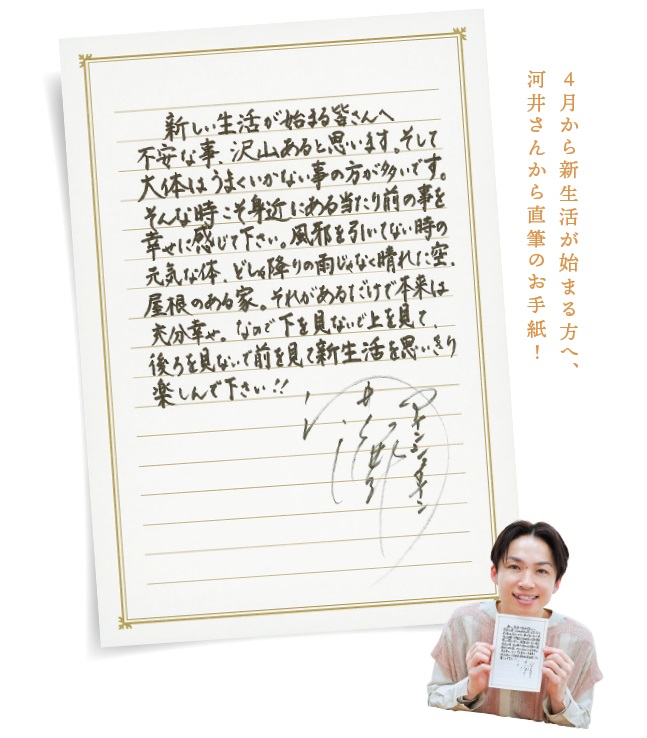 新しい生活が始まる皆さんへ
不安な事、沢山あると思います。そして
大体はうまくいかない事の方が多いです。
そんな時こそ身近にある当たり前の事を
幸せに感じて下さい。風邪を引いてない時の
元気な体、どしゃ降りの雨じゃなく晴れた空、
屋根のある家。それがあるだけで本来は
充分幸せ。なので下を見ないで上を見て、
後ろを見ないで前を見て新生活を思いきり
楽しんで下さい!!
4月から新生活が始まる方へ、
河井さんから直筆のお手紙！